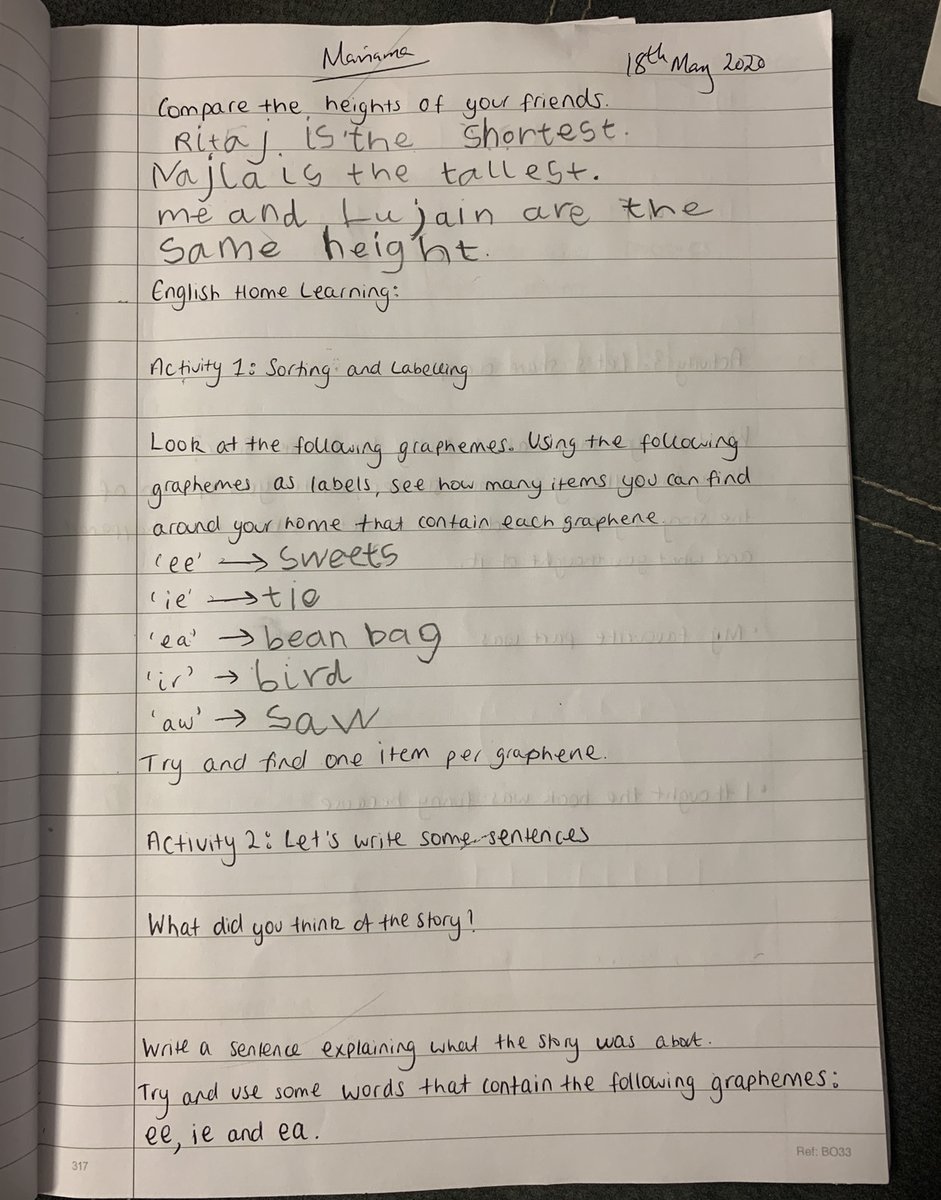 Mariama
18th May 2020
Compare the heights of your friends.
Ritaj is the shortest.
Najla is the tallest.
me and Lujain are the
same height.
English Home Learning:
Activity 1: Sorting and Labelling
Look at the following graphemes. Using the following
graphemes as labels, see how many items you can find
around your home that contain each graphene.
'ee' → sweets
'ie' → tie
'ea' → bean bag
'ir' → bird
'aw' → saw
Try and find one item per graphene.
Activity 2: Let's write some sentences
What did you think of the story?
Write a sentence explaining what the story was about.
Try and use some words that contain the following graphemes:
ee, ie and ea.
317
Ref: BO33